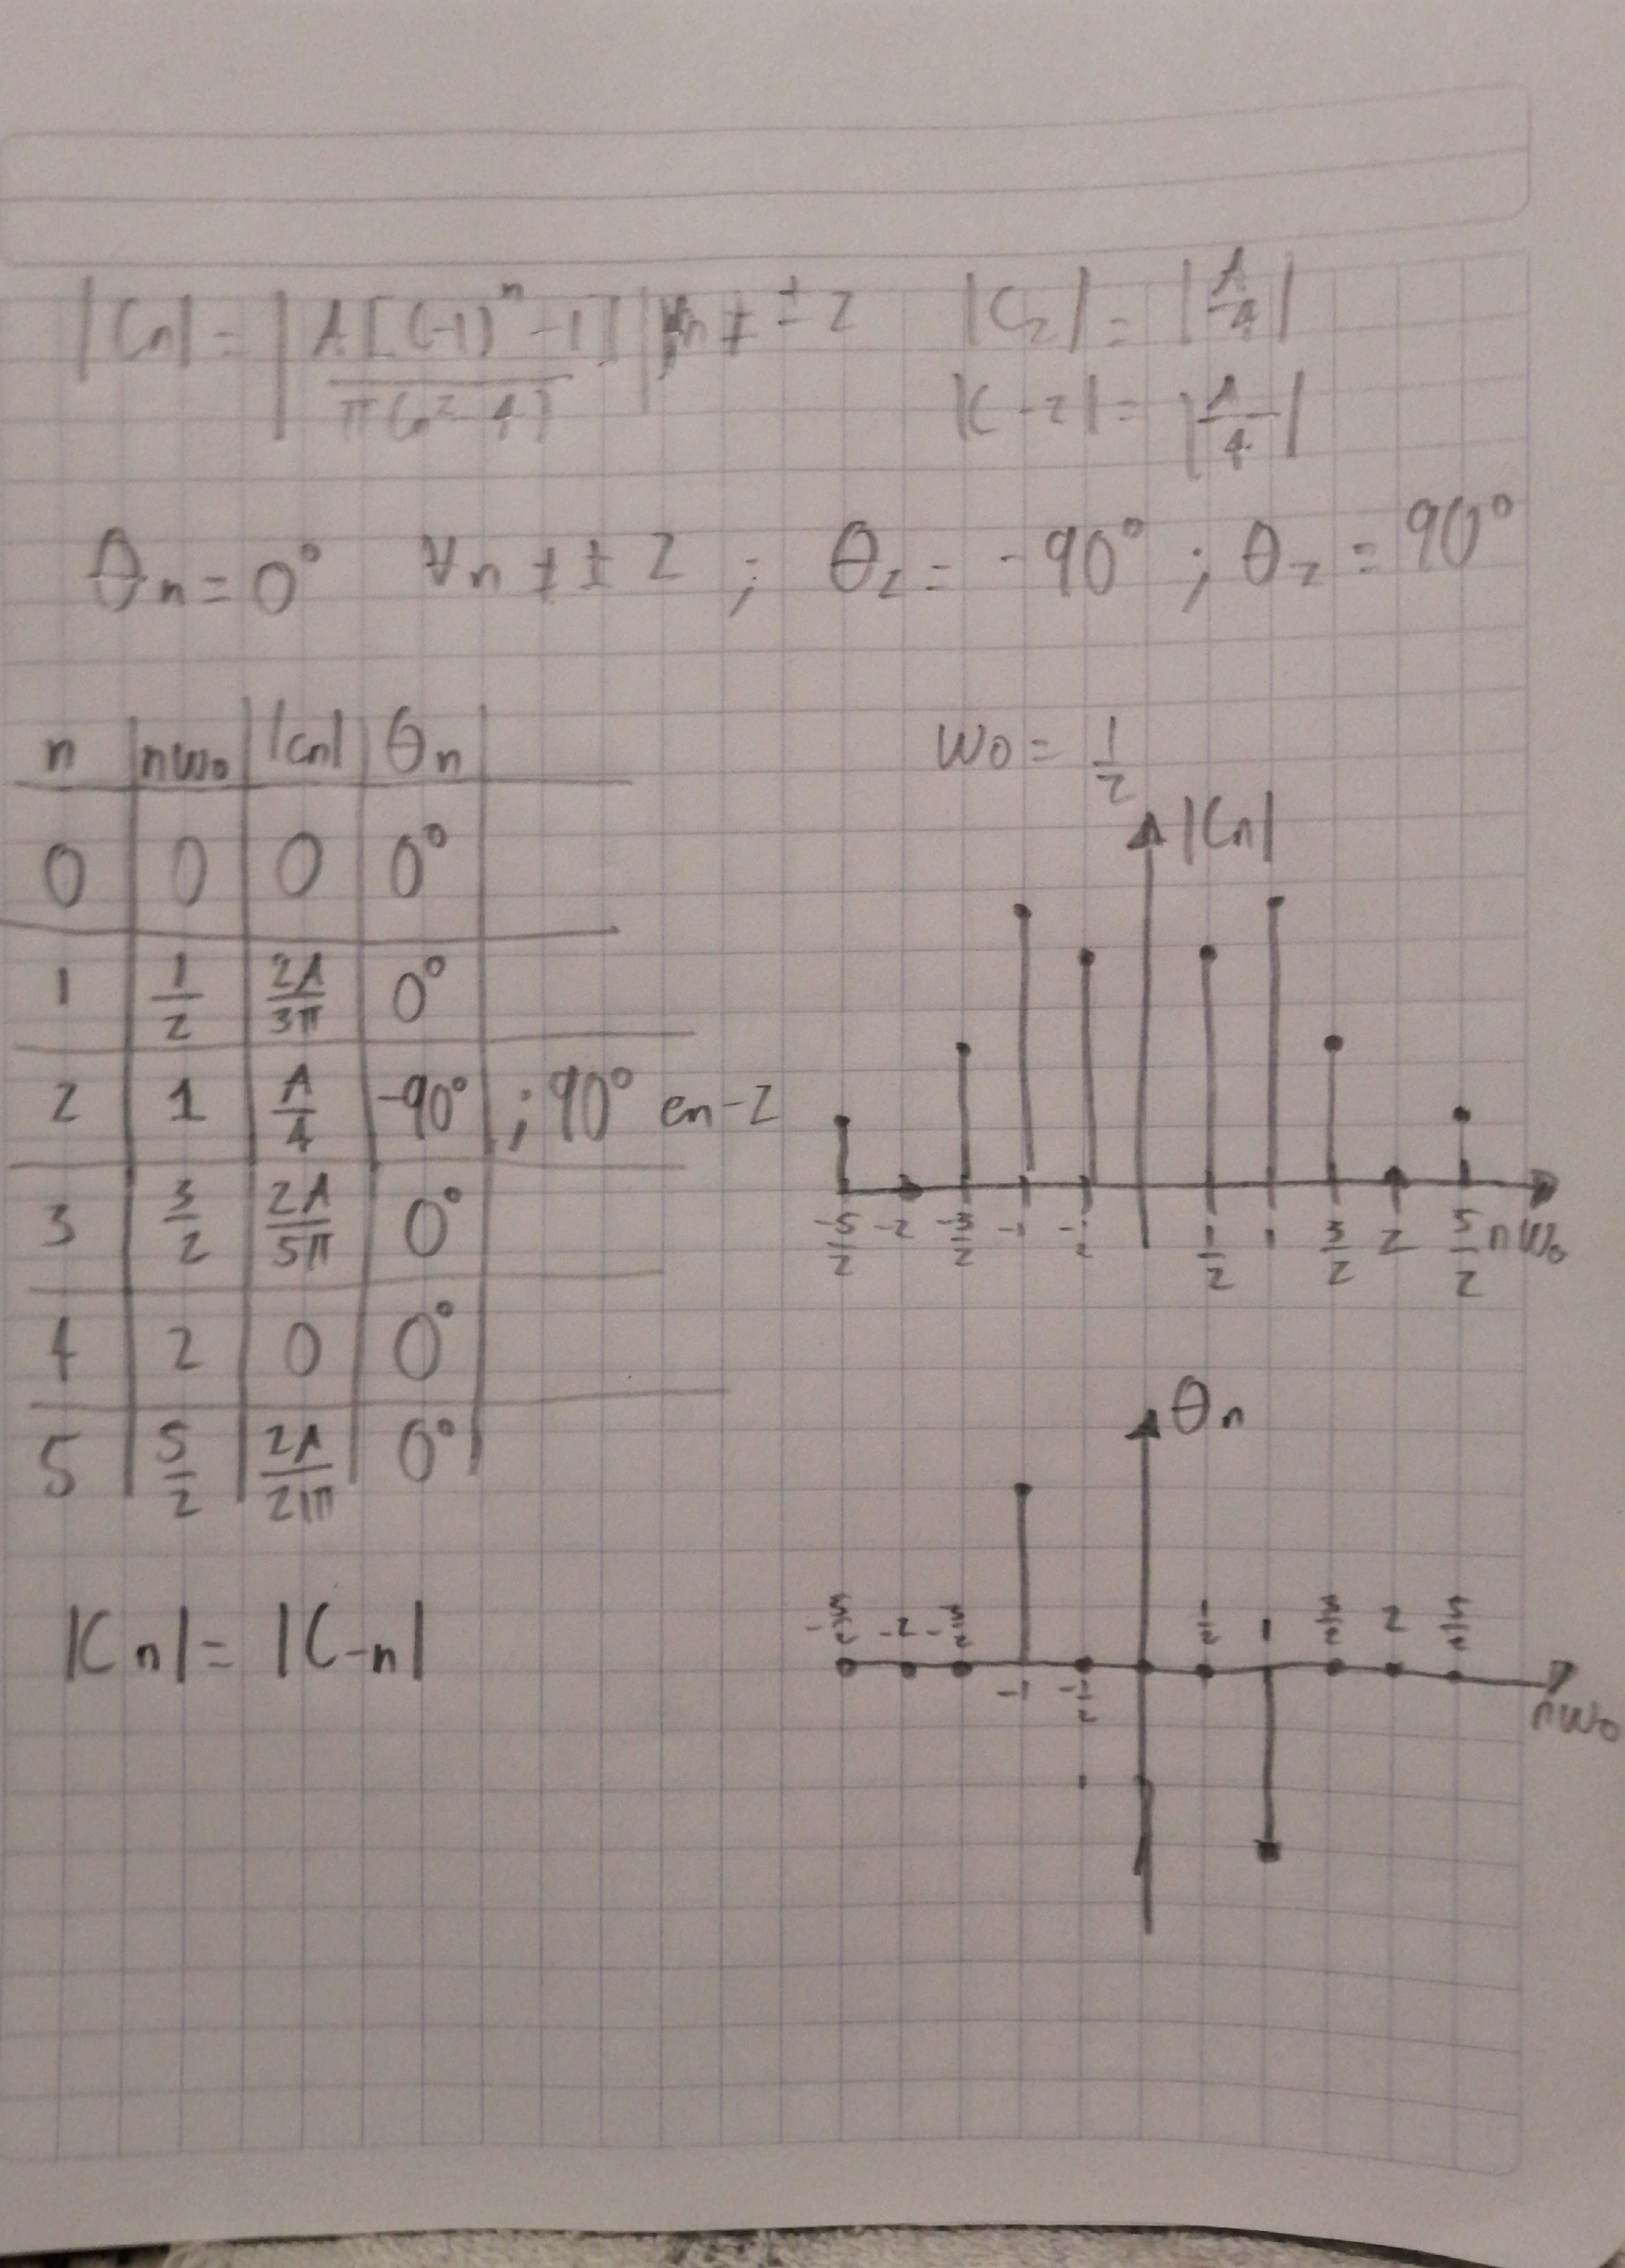 |Cn| = | A[(-1)^n -1] / π(n²-4) | ∀n ≠ ±2 |C₂| = |A/4|
|C-2| = |A/4|
θn = 0° ∀n ≠ ±2 ; θ₂ = -90° ; θ-₂ = 90°
n | nω₀ | |Cn| | θn
ω₀ = 1/2
0 | 0 | 0 | 0°
1 | 1/2 | 2A/3π | 0°
2 | 1 | A/4 | -90° ; 90° en -2
3 | 3/2 | 2A/5π | 0°
4 | 2 | 0 | 0°
5 | 5/2 | 2A/21π | 0°
|Cn| = |C-n|
|Cn|
-5/2 -2 -3/2 -1 -1/2 1/2 1 3/2 2 5/2 nω₀
θn
-5/2 -2 -3/2 -1 -1/2 1/2 1 3/2 2 5/2
nω₀